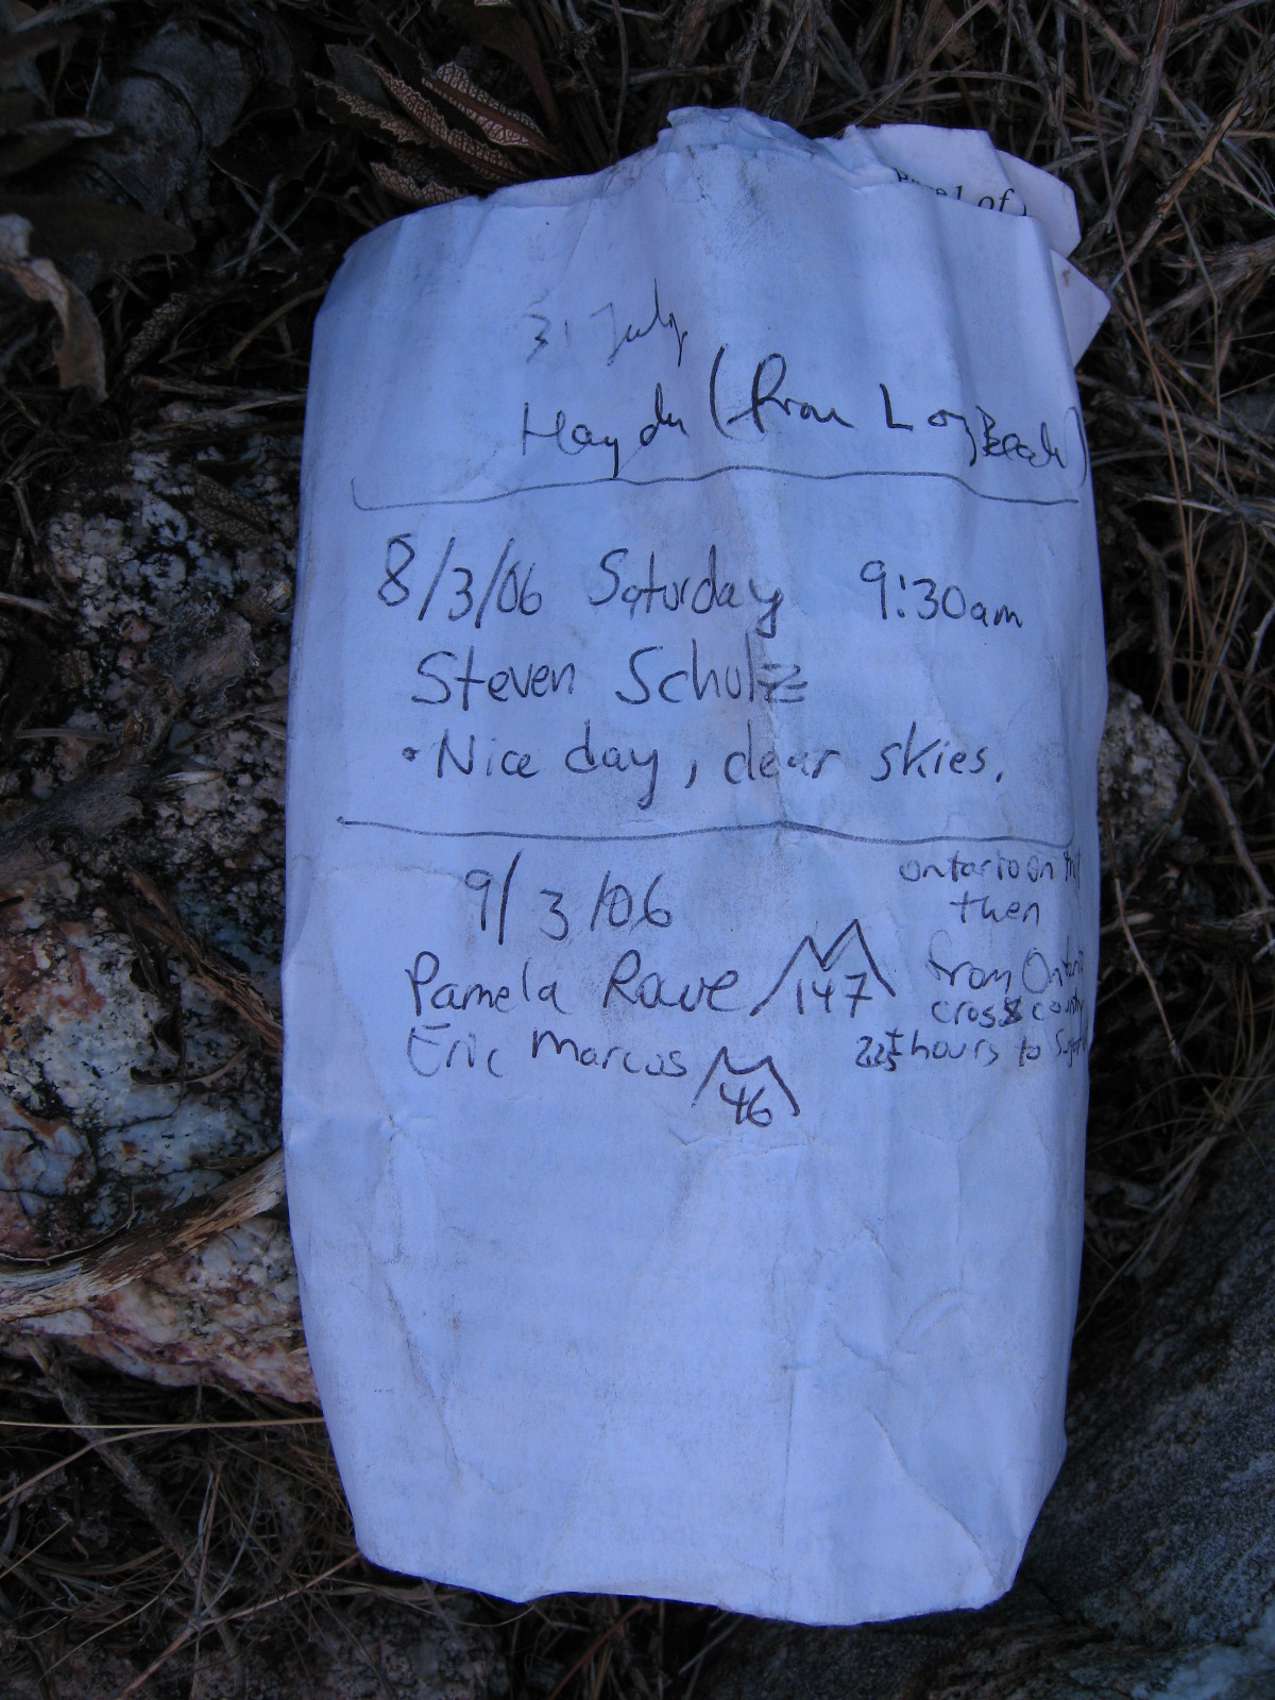 Page 1 of
31 July
Hayden (from Long Beach)
8/3/06 Saturday 9:30am
Steven Schulz
• Nice day, clear skies.
9/3/06
Pamela Rowe 147
Eric Marcus 46
Ontario on
then
from Ontario
cross country
hours to